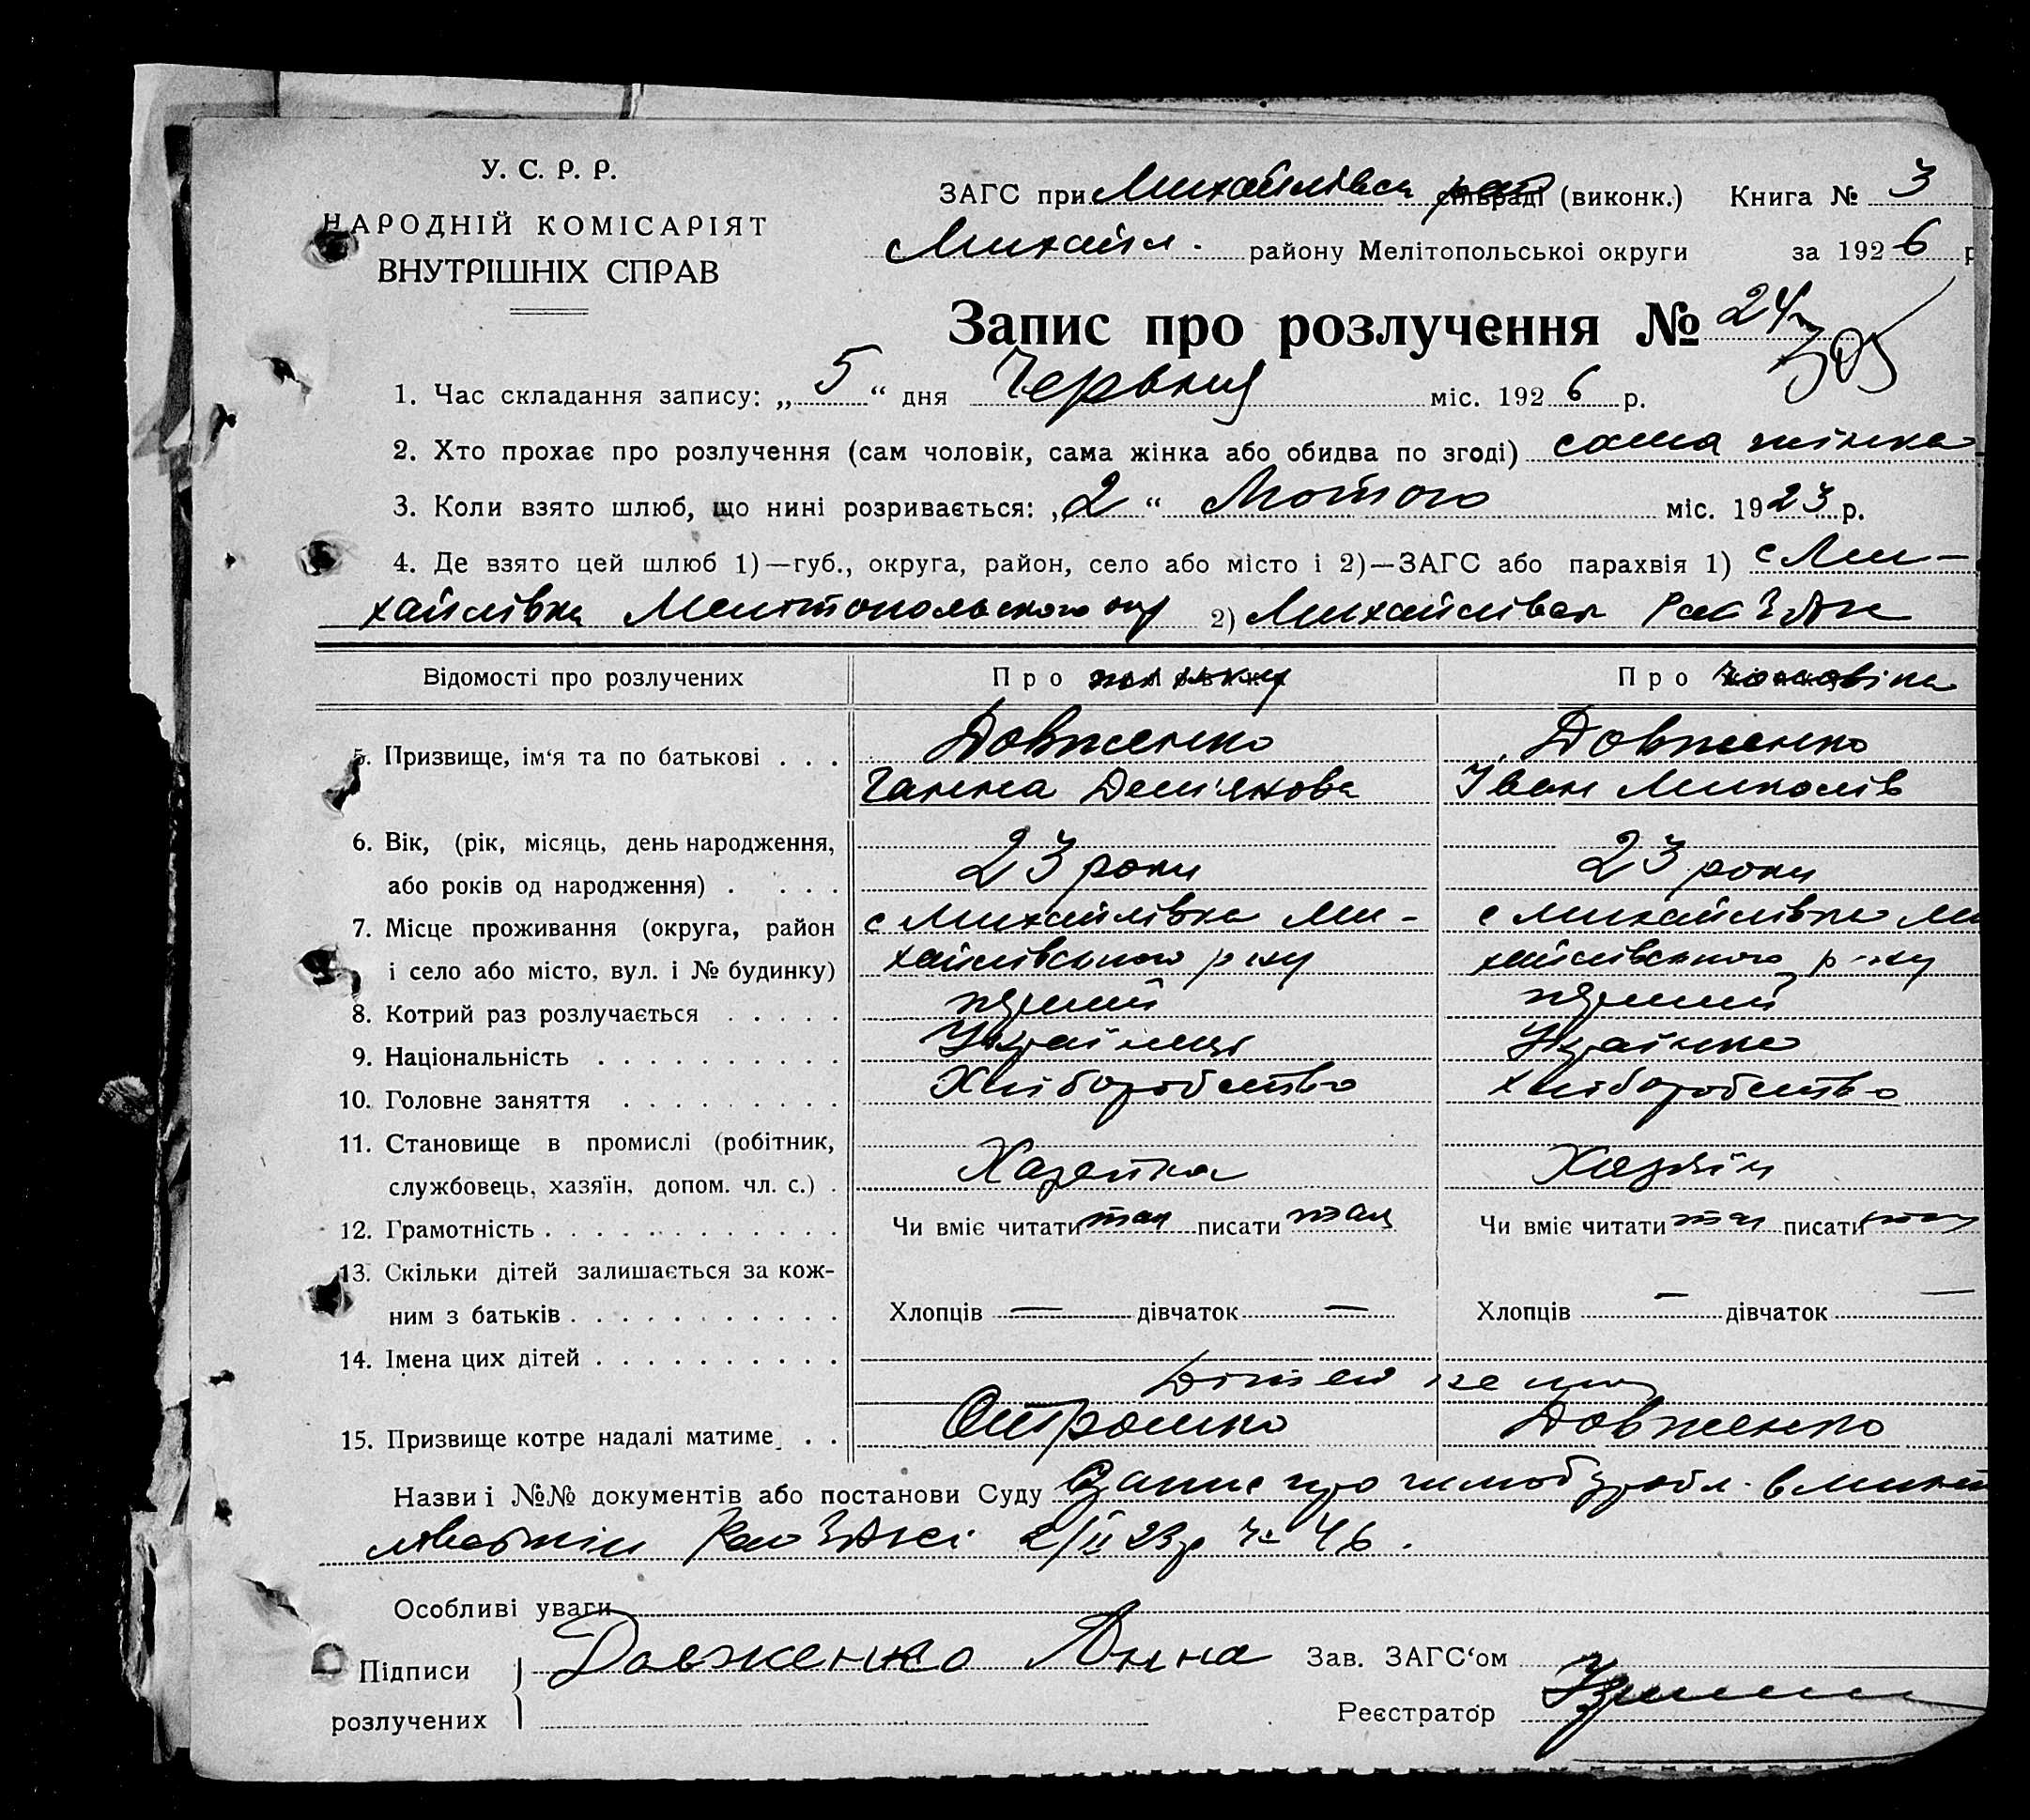 У. С. Р. Р.
НАРОДНІЙ КОМІСАРІЯТ
ВНУТРІШНІХ СПРАВ
ЗАГС при Михайлівск сільраді (виконк.) Книга № 3
Михайл. району Мелітопольської округи за 1926 р
Запис про розлучення № 24
305
1. Час складання запису: „5“ дня Червня міс. 1926 р.
2. Хто прохає про розлучення (сам чоловік, сама жінка або обидва по згоді) сама жінка
3. Коли взято шлюб, що нині розривається: „2“ Лютого міс. 1923 р.
4. Де взято цей шлюб 1)—губ., округа, район, село або місто і 2)—ЗАГС або парахвія 1) с Ми-
хайлівка Мелітопольского окр 2) Михайлівск
Відомості про розлучених Про жінку Про чоловіка
5. Призвище, ім‘я та по батькові . . . Довженко Довженко
Ганна Дем'янова Іван Миколів
6. Вік, (рік, місяць, день народження,
або років од народження) . . . . 23 роки 23 роки
7. Місце проживання (округа, район с Михайлівка Ми- с Михайлівка Ми
і село або місто, вул. і № будинку) хайлівського р-ну хайлівського р-ну
8. Котрий раз розлучається . . . . . перший перший
9. Національність . . . . . . . . . . Українця Українка
10. Головне заняття . . . . . . . . . Хліборобство хліборобство
11. Становище в промислі (робітник,
службовець, хазяїн, допом. чл. с.) . Хазейка Хазяїн
12. Грамотність . . . . . . . . . . . . Чи вміє читати так писати так Чи вміє читати так писати так
13. Скільки дітей залишається за кож-
ним з батьків . . . . . . . . . . . Хлопців — дівчаток — Хлопців — дівчаток —
14. Імена цих дітей . . . . . . . . . .
Дітей не має
15. Призвище котре надалі матиме . . Отрошко Довженко
Назви і №№ документів або постанови Суду Запис про шлюб зробл. в Михай
2/II 23р № 46.
Особливі уваги
Підписи Довженко Анна Зав. ЗАГС‘ом
розлучених Реєстратор